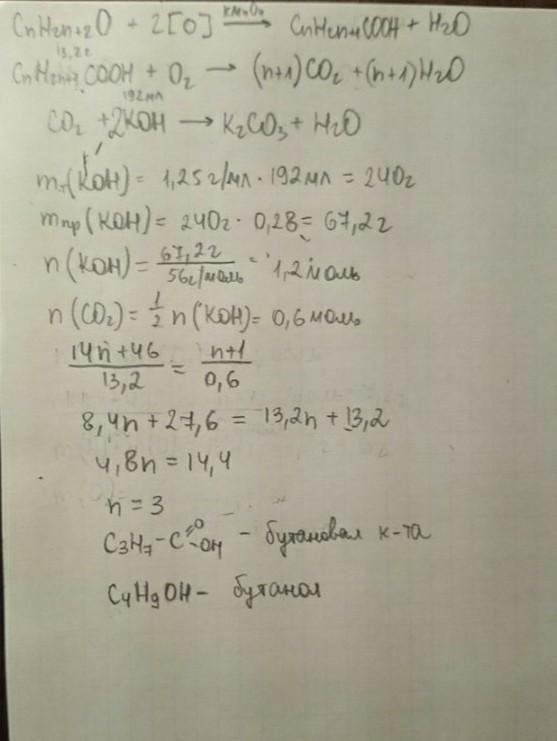 CnH2n+2O + 2[O] —KMnO4→ CnH2n+1COOH + H2O
13,2г
CnH2n+1COOH + O2 → (n+1)CO2 + (n+1)H2O
192мл
CO2 + 2KOH → K2CO3 + H2O
mт(KOH) = 1,25г/мл · 192мл = 240г
mпр(KOH) = 240г · 0,28 = 67,2г
n(KOH) = 67,2г / 56г/моль = 1,2моль
n(CO2) = 1/2 n(KOH) = 0,6моль
14n+46 / 13,2 = n+1 / 0,6
8,4n + 27,6 = 13,2n + 13,2
4,8n = 14,4
n = 3
C3H7-C=O-OH - бутановая к-та
C4H9OH - бутанол